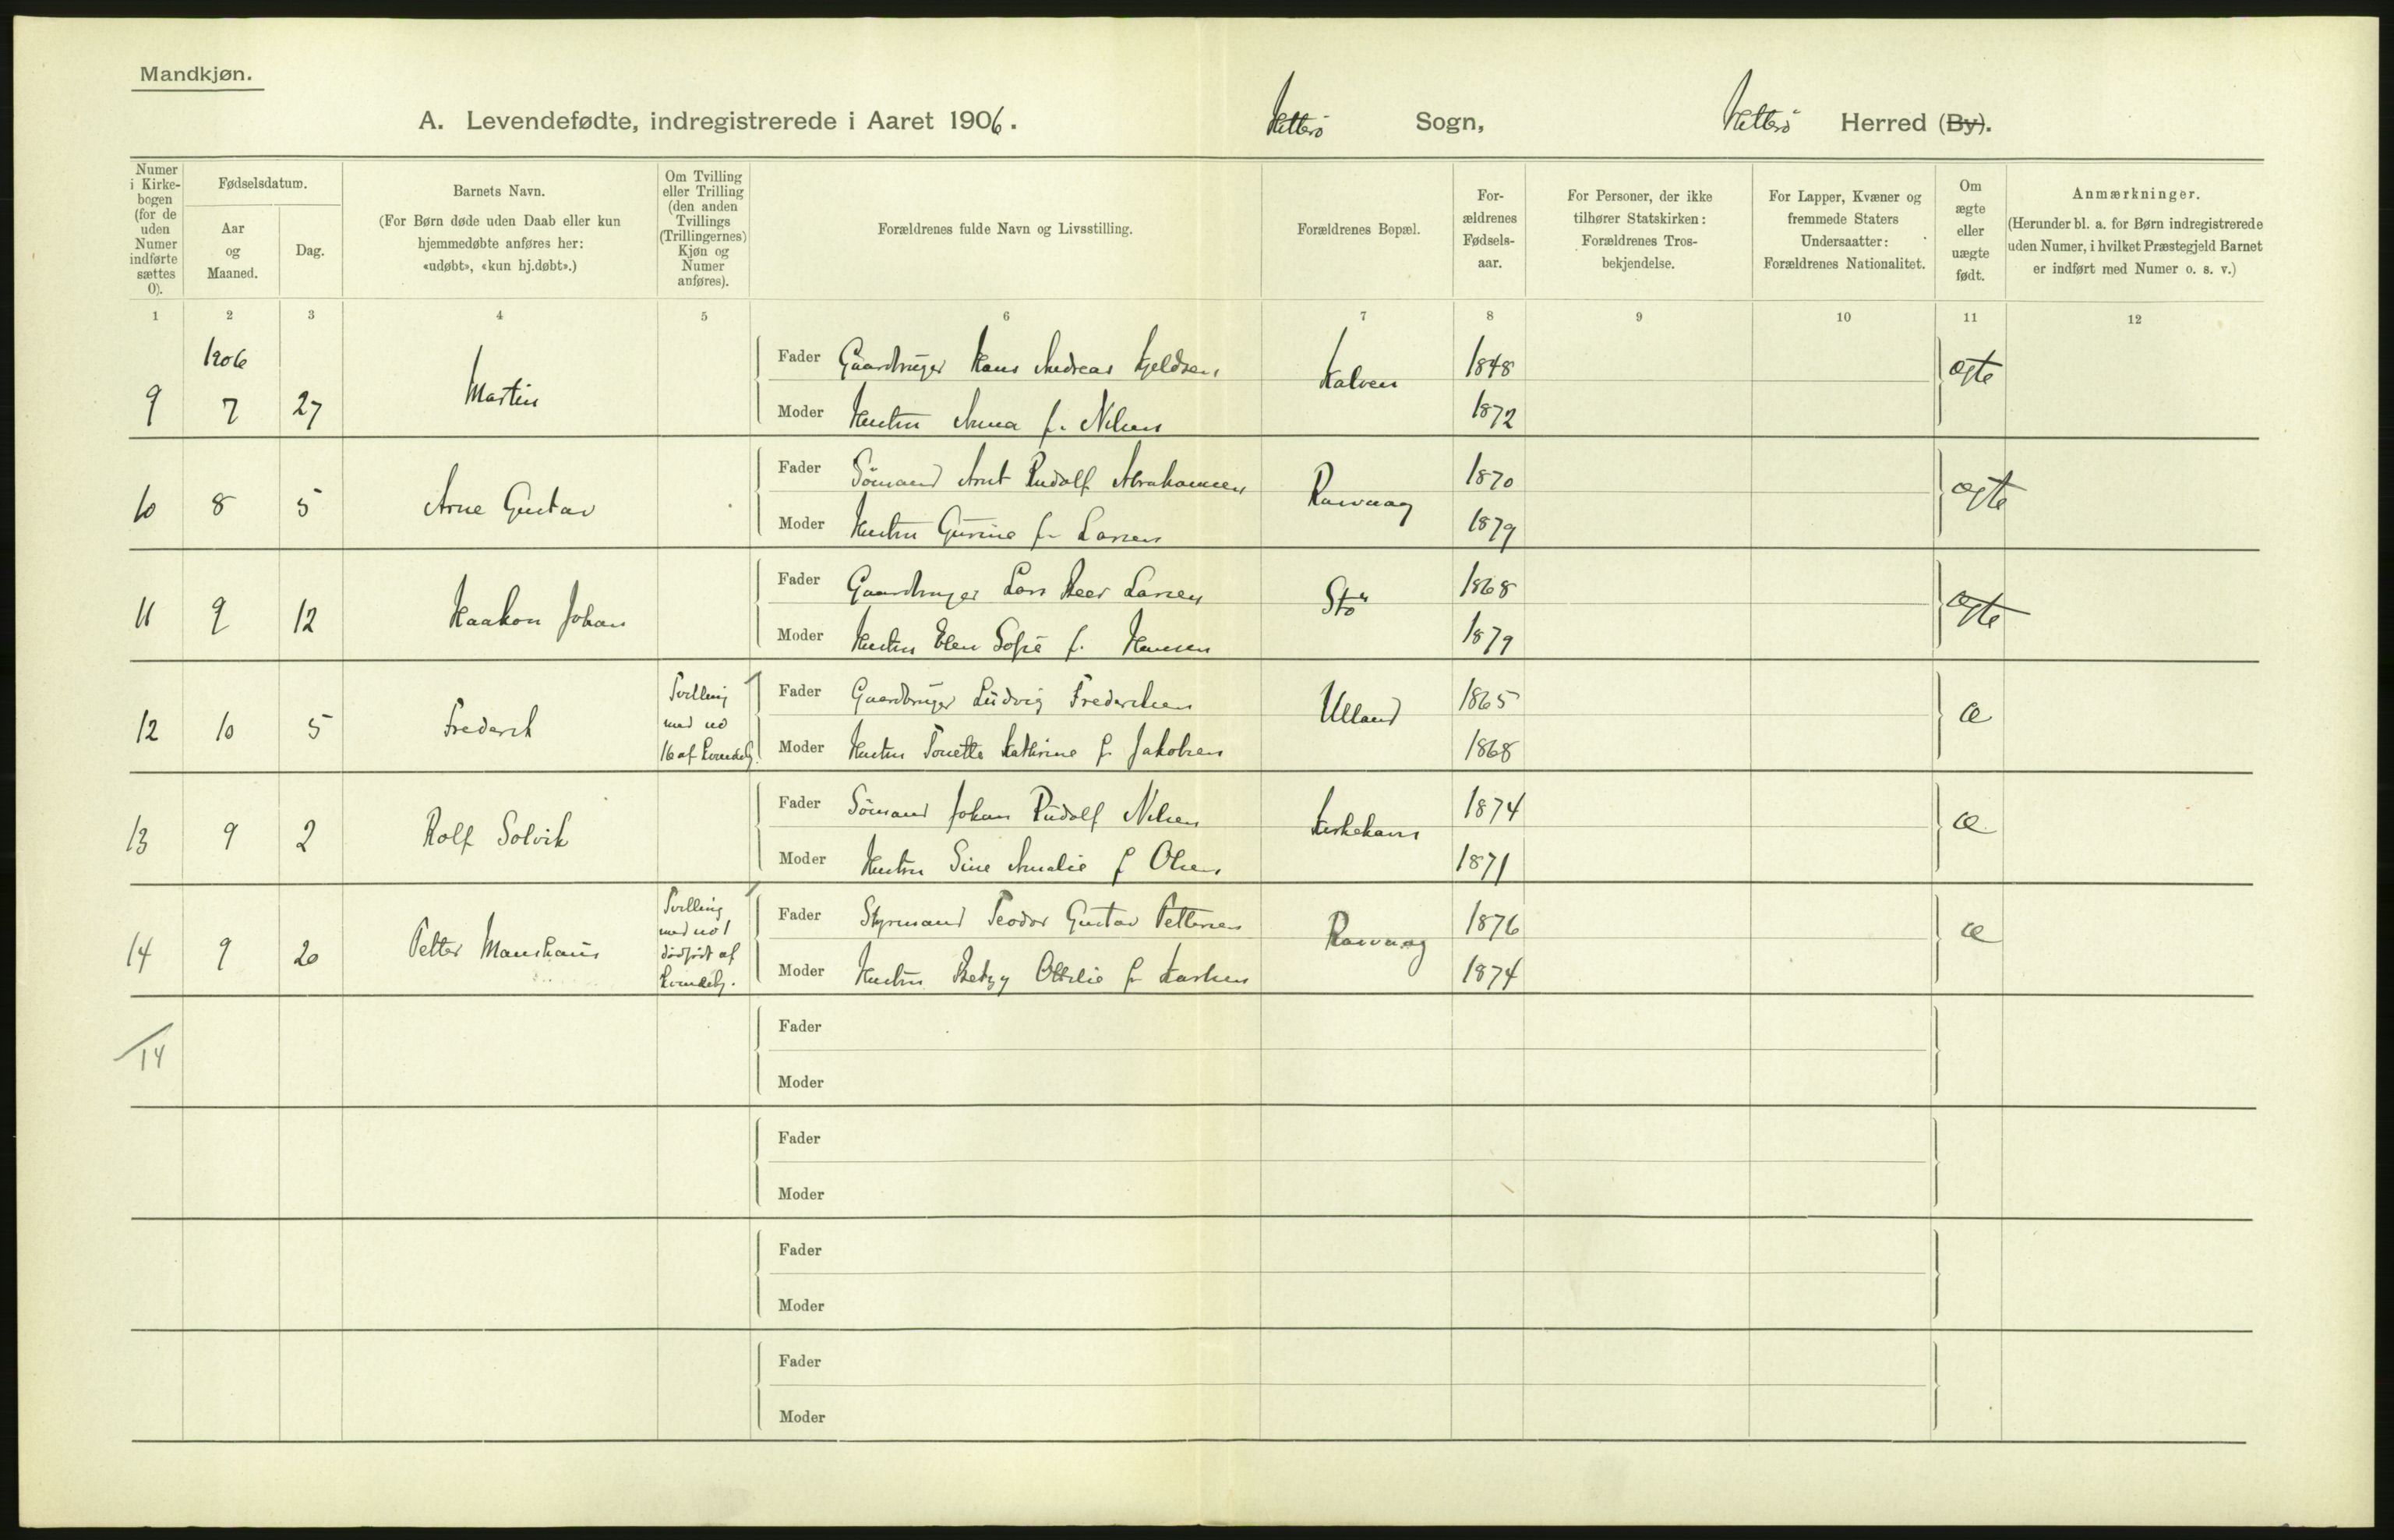 Mandkjøn.
A. Levendefødte, indregistrerede i Aaret 1906. Hitterø Sogn, Hitterø Herred (By).
Numer i Kirkebogen (for de uden Numer indførte sættes 0).
Fødselsdatum.
Aar og Maaned.
Dag.
Barnets Navn.
(For Børn døde uden Daab eller kun hjemmedøbte anføres her: «udøbt», «kun hj.døbt».)
Om Tvilling eller Trilling (den anden Tvillings (Trillingernes) Kjøn og Numer anføres).
Forældrenes fulde Navn og Livsstilling.
Forældrenes Bopæl.
Forældrenes Fødselsaar.
For Personer, der ikke tilhører Statskirken: Forældrenes Trosbekjendelse.
For Lapper, Kvæner og fremmede Staters Undersaatter: Forældrenes Nationalitet.
Om ægte eller uægte født.
Anmærkninger.
(Herunder bl. a. for Børn indregistrerede uden Numer, i hvilket Præstegjeld Barnet er indført med Numer o. s. v.)
1 2 3 4 5 6 7 8 9 10 11 12
1906
9 7 27 Martin Fader Gaardbruger Hans Andreas Kjeldsen Kalven 1848 ægte
Moder Hustru Anna f. Nilsen 1872
10 8 5 Arne Gustav Fader Sømand Arnt Rudolf Abrahamsen Rasvaag 1870 ægte
Moder Hustru Gurine f. Larsen 1879
11 9 12 Haakon Johan Fader Gaardbruger Lars Peer Larsen Stö 1868 ægte
Moder Hustru Elen Sofie f. Hansen 1879
12 10 5 Frederik Tvilling med no 16 af Kvindekj. Fader Gaardbruger Ludvig Frederiksen Ulland 1865 æ
Moder Hustru Tonette Kathrine f. Jakobsen 1868
13 9 2 Rolf Solvik Fader Sömand Johan Rudolf Nilsen Kirkehavn 1874 æ
Moder Hustru Sine Amalie f Olsen 1871
14 9 20 Petter Manshaus Tvilling med no 1 dödfödt af Kvindekj. Fader Styrmand Teodor Gustav Pettersen Rasvaag 1876 æ
Moder Hustru Betzy Ottilie f. Karlsen 1874
14 Fader
Moder
Fader
Moder
Fader
Moder
Fader
Moder